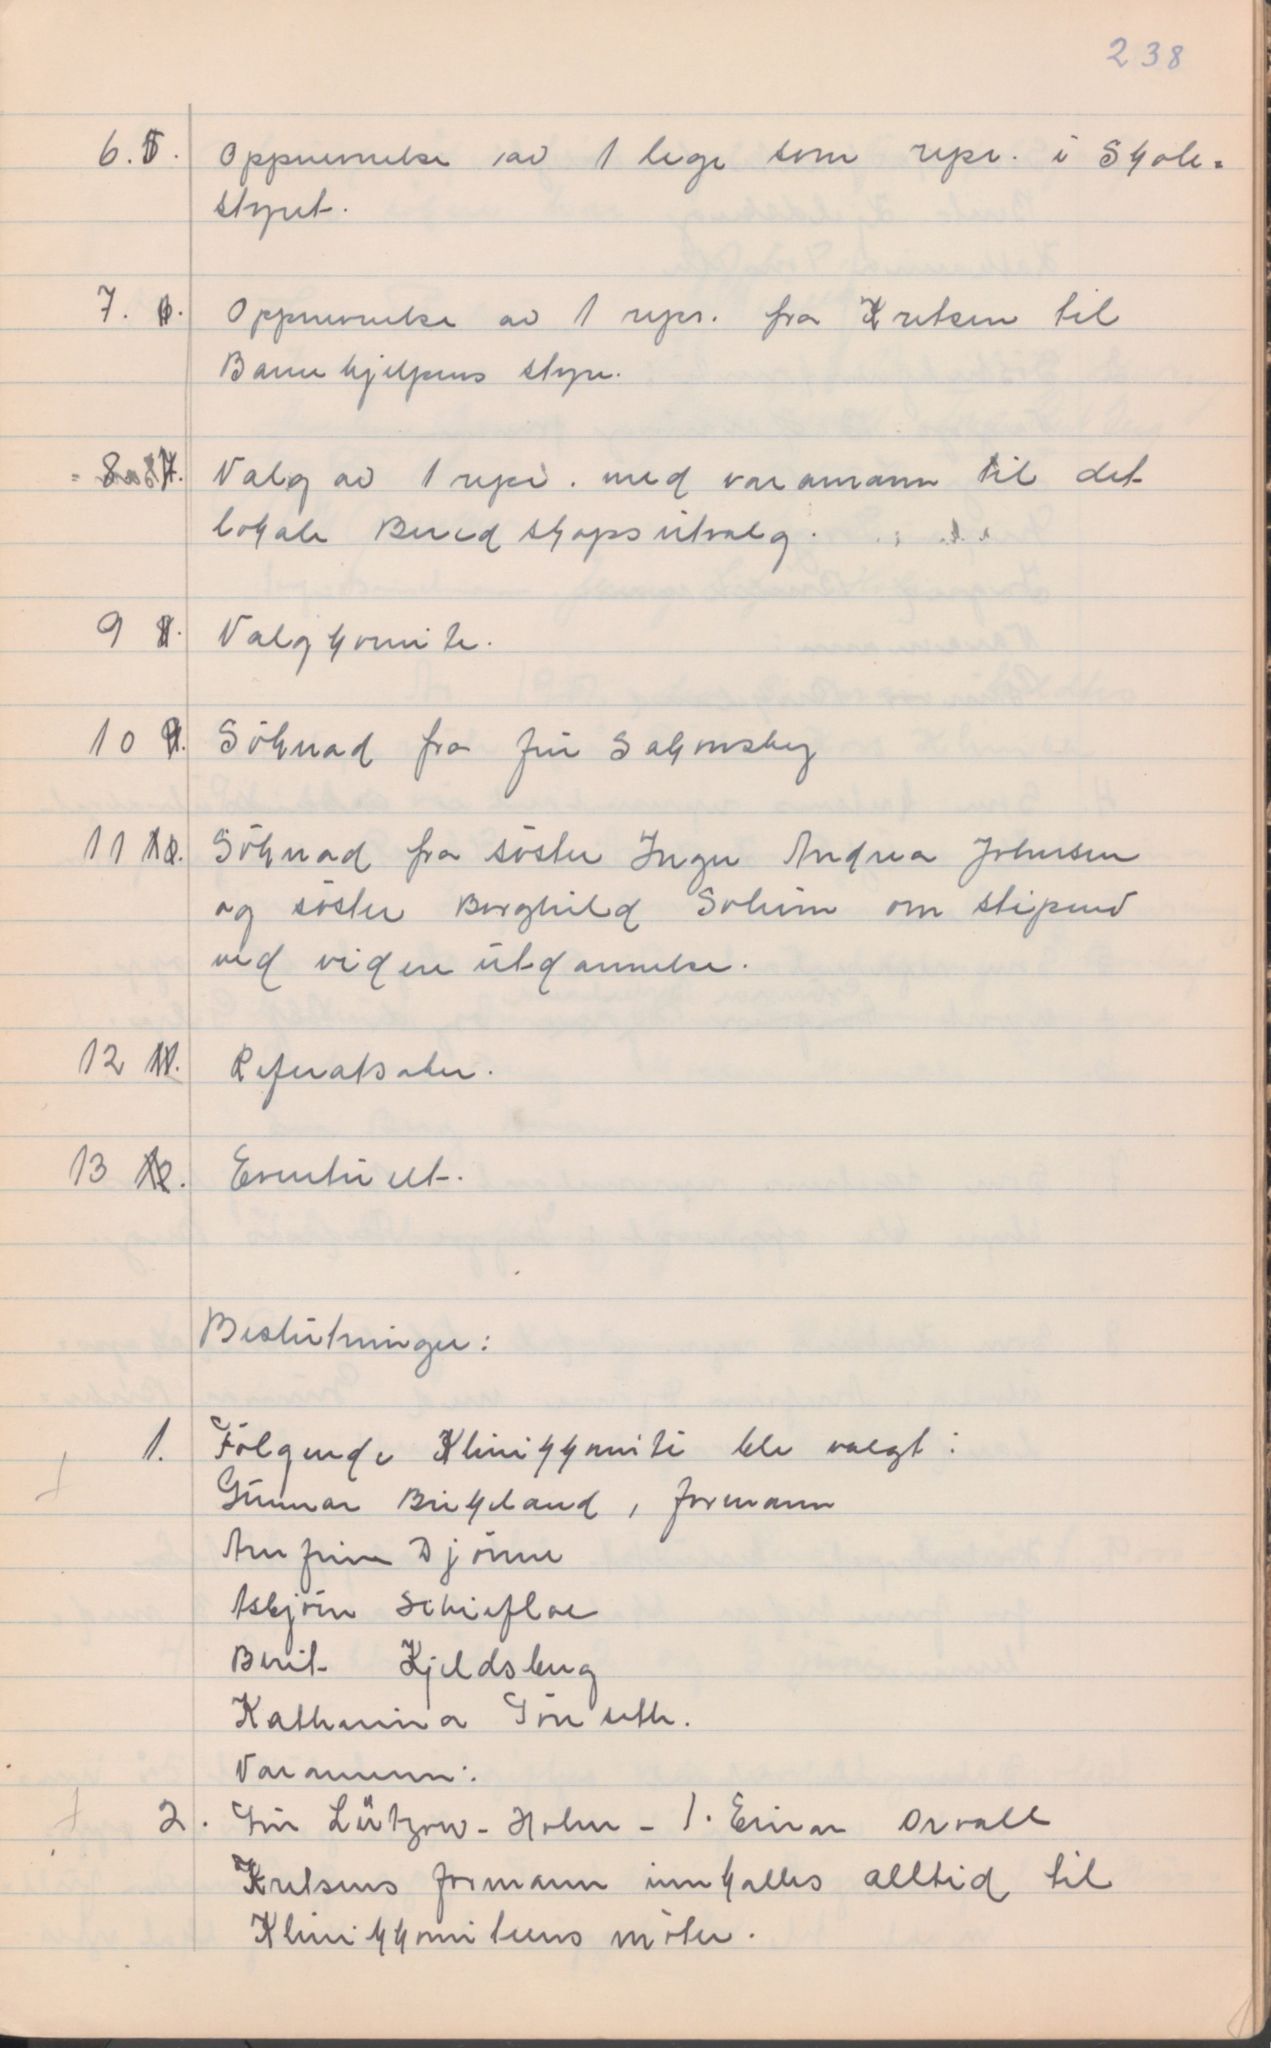 238
6. Oppnevnelse av 1 lege som repr. i Skole-
styret.
7. Oppnevnelse av 1 repr. fra Kretsen til
Barnehjelpens styre.
8. Valg av 1 repr. med varamann til det
lokale Beredskapsutvalg.
9 Valgkomite.
10 Söknad fra frü Sakonsberg
11 Söknad fra söster Inger Andrea Johnsen
og söster Borghild Solheim om stipend
ved videre ütdannelse.
12 Referatsaker.
13 Eventüelt.
Beslütninger:
1. Fölgende Klinikkomite ble valgt:
Günnar Birkeland, formann
Arnfinn Djönne
Asbjörn Schiefloe
Berit Kjeldsberg
Katharina Grinseth.
Varamenn:
2. Siri Lützow-Holm - 1. Einar Orvall
Kretsens formann innkalles alltid til
Klinikkomiteens möter.